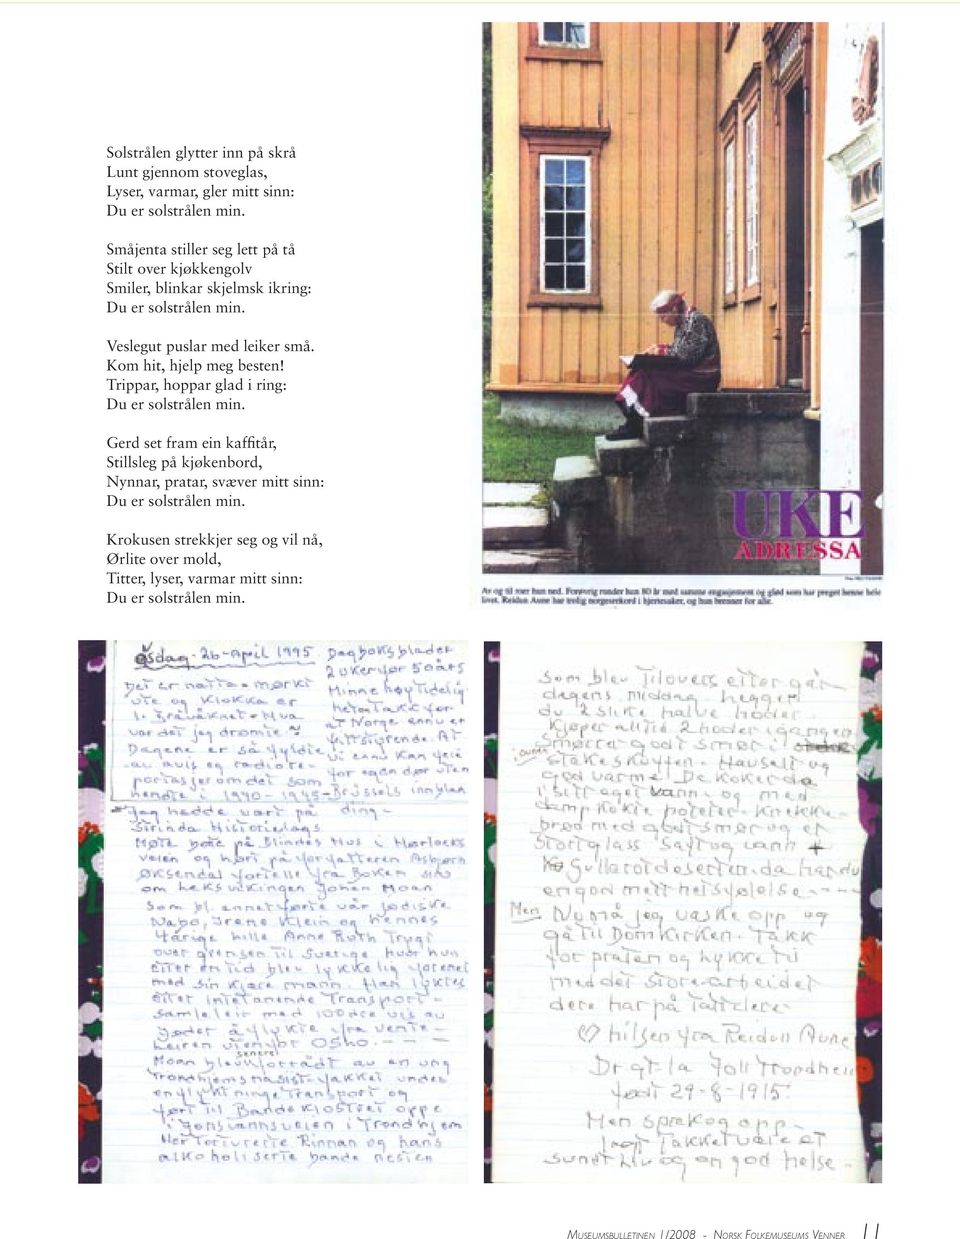 Solstrålen glytter inn på skrå
Lunt gjennom stoveglas,
Lyser, varmar, gler mitt sinn:
Du er solstrålen min.
Småjenta stiller seg lett på tå
Stilt over kjøkkengolv
Smiler, blinkar skjelmsk ikring:
Du er solstrålen min.
Veslegut puslar med leiker små.
Kom hit, hjelp meg besten!
Trippar, hoppar glad i ring:
Du er solstrålen min.
Gerd set fram ein kaffitår,
Stillsleg på kjøkenbord,
Nynnar, pratar, svæver mitt sinn:
Du er solstrålen min.
Krokusen strekkjer seg og vil nå,
Ørlite over mold,
Titter, lyser, varmar mitt sinn:
Du er solstrålen min.
UKE
ADRESSA
Av og til roer hun ned. Forøvrig runder hun 80 år med samme engasjement og glød som har preget henne hele
livet. Reidun Aune har trolig norgesrekord i hjertesaker, og hun brenner for alle.
26-april 1995 Dagboksblader
2 uker før 50 års
Det er natta-mørkt Minne høytidelig
ute og klokka er
var det jeg drømte at Norge ennu er
Dagene er så fyldte
av avis og radiore-
portasjer om det som for egen dør uten
hendte i 1940-1945-Brüssels innblan
Jeg hadde vært på ding-
Strinda Historielags
Møte på Blindes Hus i
veien og hørt på forfatteren Asbjørn
Øksendal fortelle fra Boken sin
om heksvikingen Johan Moan
Som bl. annet førte vår jødiske
Nabo, Irene Klein og hennes
4årige lille Anne Ruth
over grensen til Sverige hvor hun
etter en tid blev lykkelig forenet
med sin kjære mann. Han
etter intetanende Transport-
samleleir med 100dre vis av
jøder å flykte fra vente-
leiren utenfor Osko.---
senere
Moan blev forrådt av en ung
trondhjems nasist-jakket under
en flyktningetransport og
ført til Bandeklostret oppe
i Jonsvannsveien i Trondhjem
Her torturerte Rinnan og hans
alkoholiserte bande nesten
Som blev tilovers etter går
dagens middag
du 2 slike halve hoder.
Kjøper alltid 2 hoder i gangen
Smørrer godt smør i
god varme. De koker da
i sitt eget vann og med
damp kokte poteter. Knekke-
brød med godt smør og et
Stort glass Saft og vann +
Gullarotdeserten. da har du
en god mett helsfølelse---
Men Nu må jeg vaske opp og
gå til Domkirken. Takk
for praten og lykke til
med det Store arbeidet
dere har på tatt dere
♡ hilsen fra Reidun Aune
født 29-8-1915
Men sprek og opp-
lagt Takket være et
sundt liv og en god helse-
MUSEUMSBULLETINEN 1/2008 - NORSK FOLKEMUSEUMS VENNER 11